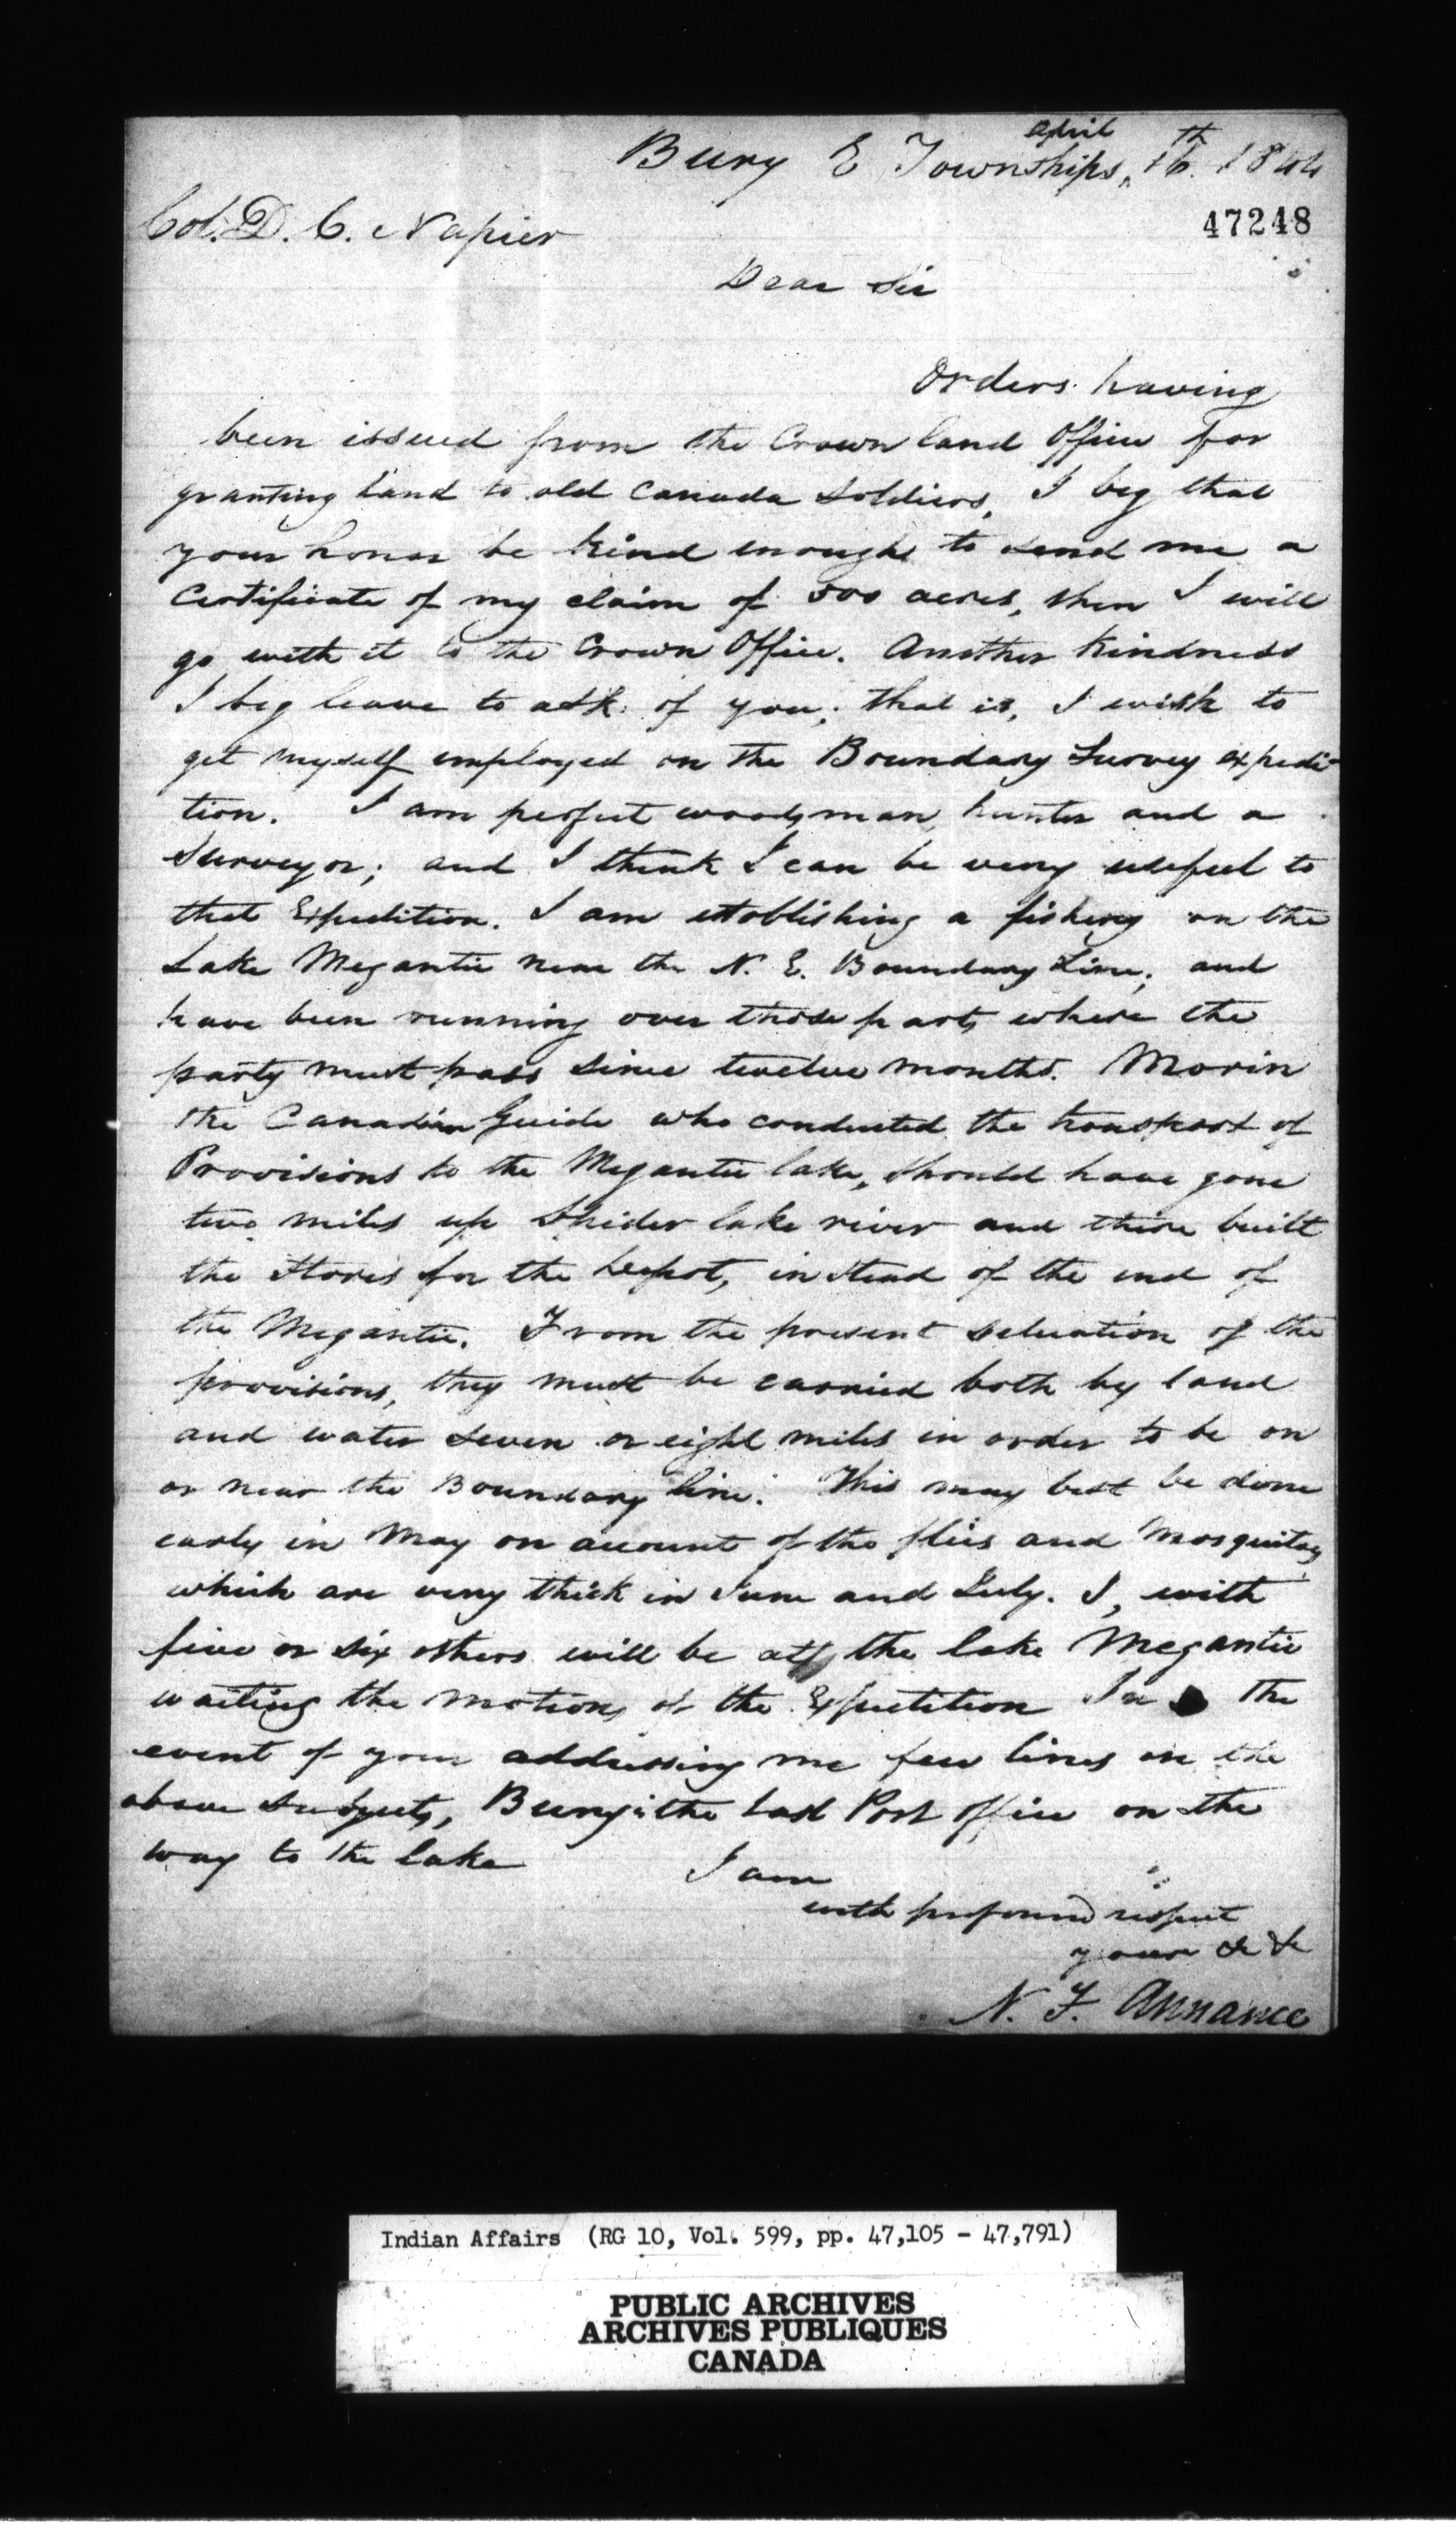 Bury E Townships, april 16th. 1844
Col. D. C. Napier
47248
Dear Sir
Orders having
been issued from the Crown land Office for
granting land to old Canada Soldiers, I beg that
your honor be kind enough to send me a
Certificate of my claim of 500 acres, then I will
go with it to the Crown Office. Another kindness
I beg leave to ask of you; that is, I wish to
get myself employed on the Boundary Survey expedi-
tion. I am perfect woodsman, hunter and a
Surveyor; and I think I can be very useful to
that Expedition. I am establishing a fishery on the
Lake Megantic near the N. E. Boundary Line; and
have been running over those parts where the
party must pass since twelve months. Morin
the Canadian Guide who conducted the transport of
Provisions to the Megantic lake, should have gone
two miles up Spider lake river and there built
the Stores for the Depot, in stead of the end of
the Megantic. From the present situation of the
provisions, they must be carried both by land
and water seven or eight miles in order to be on
or near the Boundary line. This may best be done
early in May on account of the flies and Mosquitoes
which are very thick in June and July. I, with
five or six others will be at the lake Megantic
waiting the motions of the Expetition In the
event of your addressing me few lines on the
above subjects, Bury is the last Post office on the
way to the lake
I am
with profound respect
yours &c &c
N. F. Annance
Indian Affairs (RG 10, Vol. 599, pp. 47,105 - 47,791)
PUBLIC ARCHIVES
ARCHIVES PUBLIQUES
CANADA